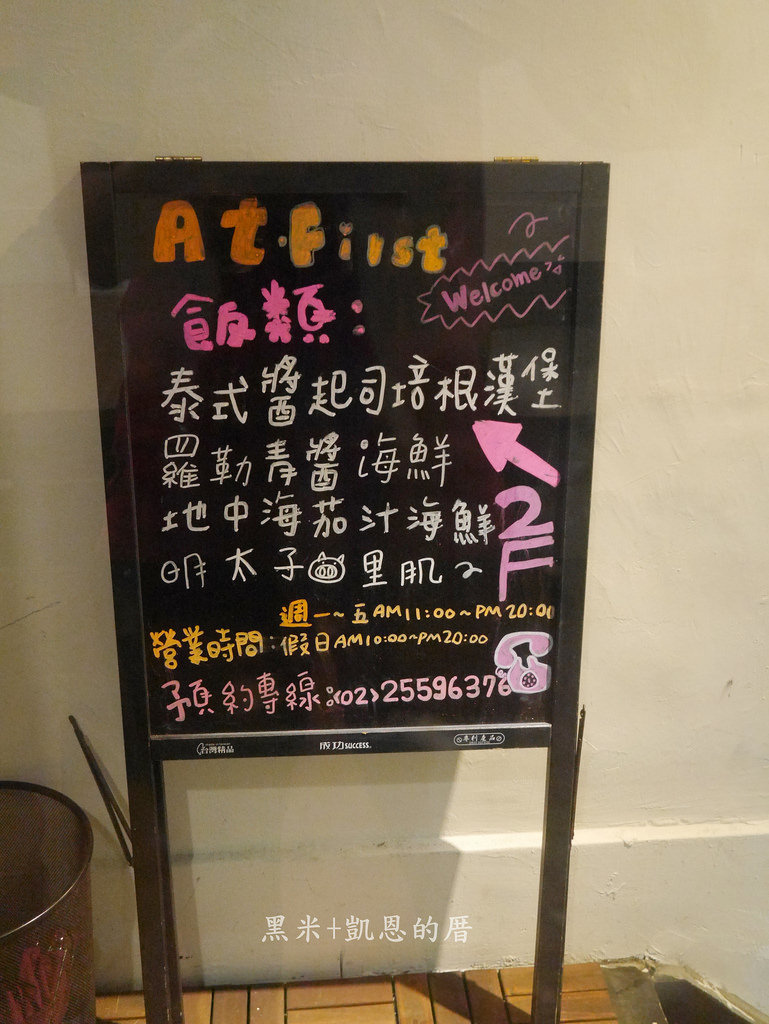 At.First
Welcome
飯類:
泰式醬起司培根漢堡
羅勒青醬海鮮
地中海茄汁海鮮
明太子里肌~
2F
週一~五AM11:00~PM20:00
營業時間:假日AM10:00~PM20:00
預約專線:(02)25596376
台灣精品
成功SUCCESS
專利產品
黑米+凱恩的厝